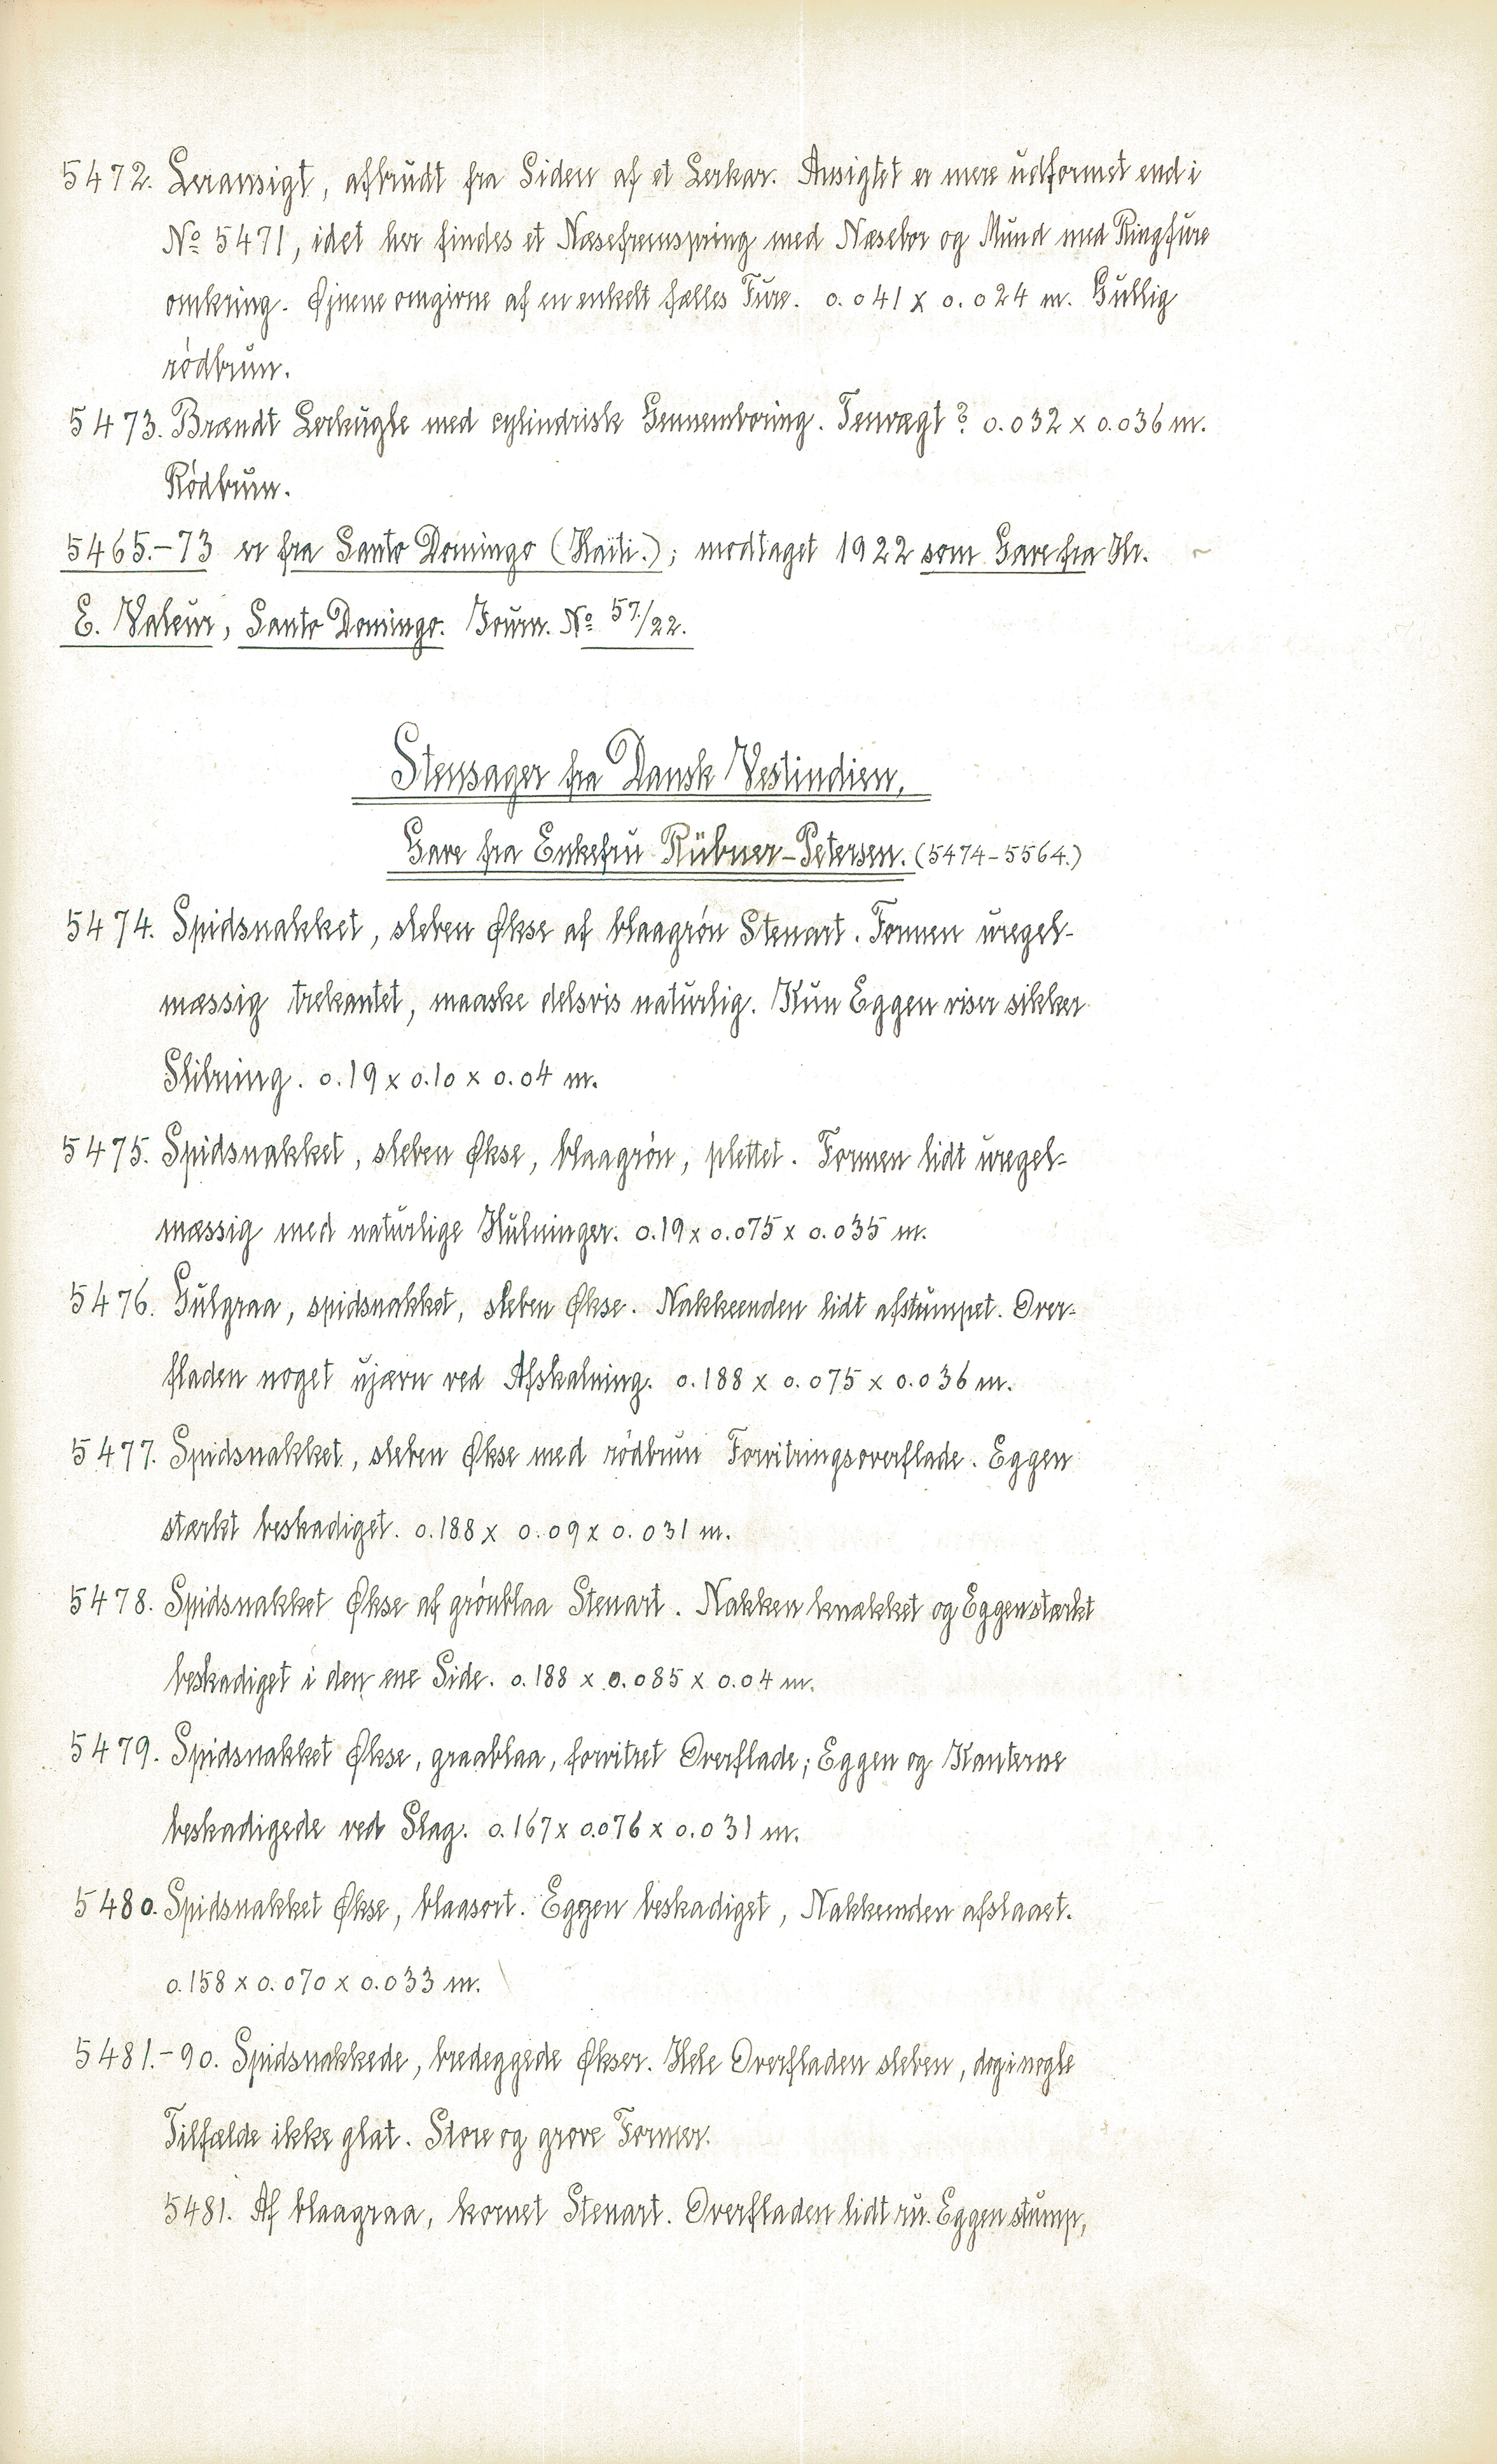 5472. Leransigt, afbrudt fra Siden af et Lerkar. Ansigtet er mere udformet end i
No 5471, idet her findes et Næsefremspring med Næsebor og Mund med Ringfure
omkring. Øjnene omgivne af en enkelt fælles Fure. 0.041 x 0.024 m. Gullig
rødbrun.
5473. Brændt Lerkugle med cylindrisk Gennemboring. Tenvægt? 0.032 x 0.036 m.
Rødbrun.
5465.-73 er fra Santo Domingo (Haïti.); modtaget 1922 som Gave fra Hr.
E. Valeur, Santo Domingo. Journ. No 57./22.
Stensager fra Dansk Vestindien.
Gave fra Enkefru Rübner-Petersen. (5474-5564.)
5474. Spidsnakket, sleben Økse af blaagrøn Stenart. Formen uregel-
mæssig trekantet, maaske delsvis naturlig. Kun Eggen viser sikker
Slibning. 0.19 x 0.10 x 0.04 m.
5475. Spidsnakket, sleben Økse, blaagrøn, plettet. Formen lidt uregel-
mæssig med naturlige Hulninger. 0.19 x 0.075 x 0.035 m.
5476. Gulgraa, spidsnakket, sleben Økse. Nakkeenden lidt afstumpet. Over-
fladen noget ujævn ved Afskalning. 0.188 x 0.075 x 0.036 m.
5477. Spidsnakket, sleben Økse med rødbrun Forvitringsoverflade. Eggen
stærkt beskadiget. 0.188 x 0.09 x 0.031 m.
5478. Spidsnakket Økse af grønblaa Stenart. Nakken knækket og Eggen stærkt
beskadiget i den ene Side. 0.188 x 0.085 x 0.04 m.
5479. Spidsnakket Økse, graablaa, forvitret Overflade; Eggen og Kanterne
beskadigede ved Slag. 0.167 x 0.076 x 0.031 m.
5480. Spidsnakket Økse, blaasort. Eggen beskadiget, Nakkeenden afslaaet.
0.158 x 0.070 x 0.033 m.
5481.-90. Spidsnakkede, bredeggede Økser. Hele Overfladen sleben, dog i nogle
Tilfælde ikke glat. Store og grove Former.
5481. Af blaagraa, kornet Stenart. Overfladen lidt ru. Eggen stump,